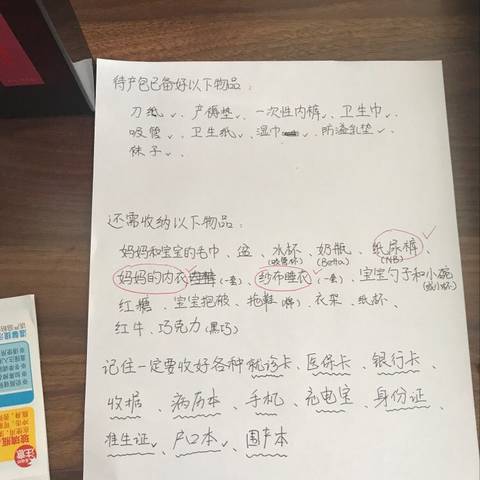 待产包已备好以下物品：
刀纸✓、产褥垫✓、一次性内裤✓、卫生巾✓、
吸管✓、卫生纸✓、湿巾✓、防溢乳垫✓、
袜子✓、
还需收纳以下物品：
妈妈和宝宝的毛巾、盆、水杯(吸管杯)、奶瓶(Betta)、纸尿裤(NB)✓、
妈妈的内衣(一套)、纱布睡衣(一套)✓、宝宝勺子和小碗(或小杯)
红糖、宝宝抱被、拖鞋、衣架、纸杯、
红牛、巧克力(黑巧)
记住一定要收好各种就诊卡、医保卡、银行卡、
收据、病历本、手机、充电宝、身份证、
准生证✓、户口本✓、围产本
温馨提示
玻璃瓶
注意